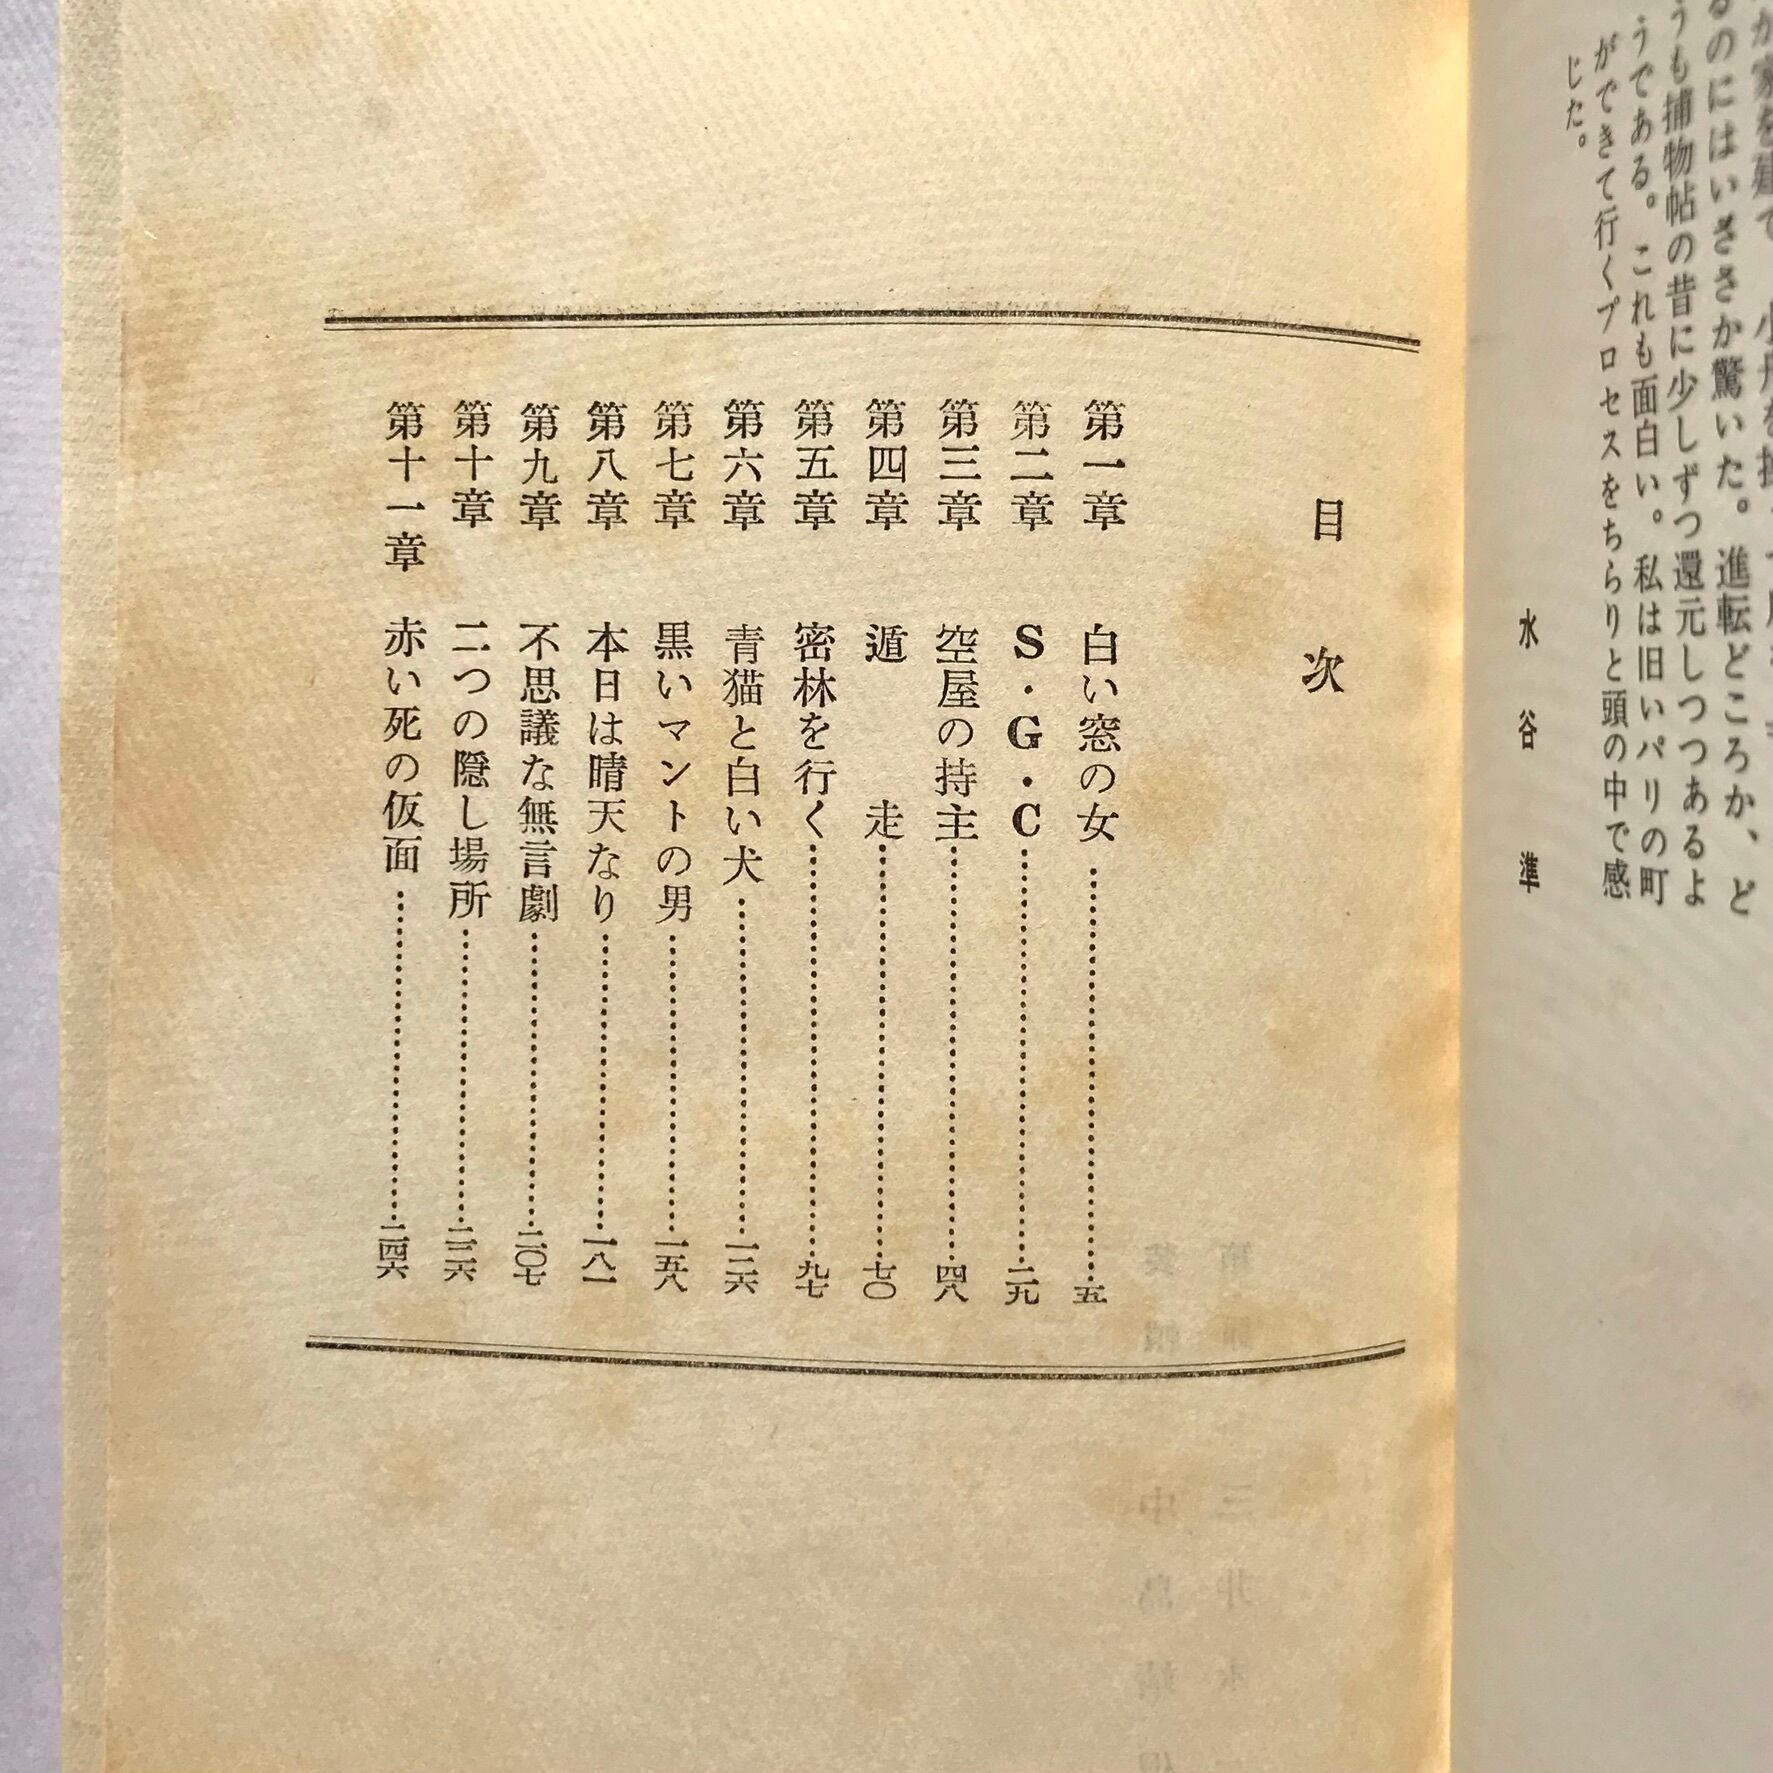 るのにはいささか驚いた。進転どころか、ど
うも捕物帖の昔に少しずつ還元しつつあるよ
うである。これも面白い。私は旧いパリの町
ができて行くプロセスをちらりと頭の中で感
じた。
水谷準
目次
第一章 白い窓の女……五
第二章 S・G・C……二九
第三章 空屋の持主……四八
第四章 遁走……七〇
第五章 密林を行く……九七
第六章 青猫と白い犬……一三六
第七章 黒いマントの男……一五八
第八章 本日は晴天なり……一八一
第九章 不思議な無言劇……二〇七
第十章 二つの隠し場所……二三六
第十一章 赤い死の仮面……二四六